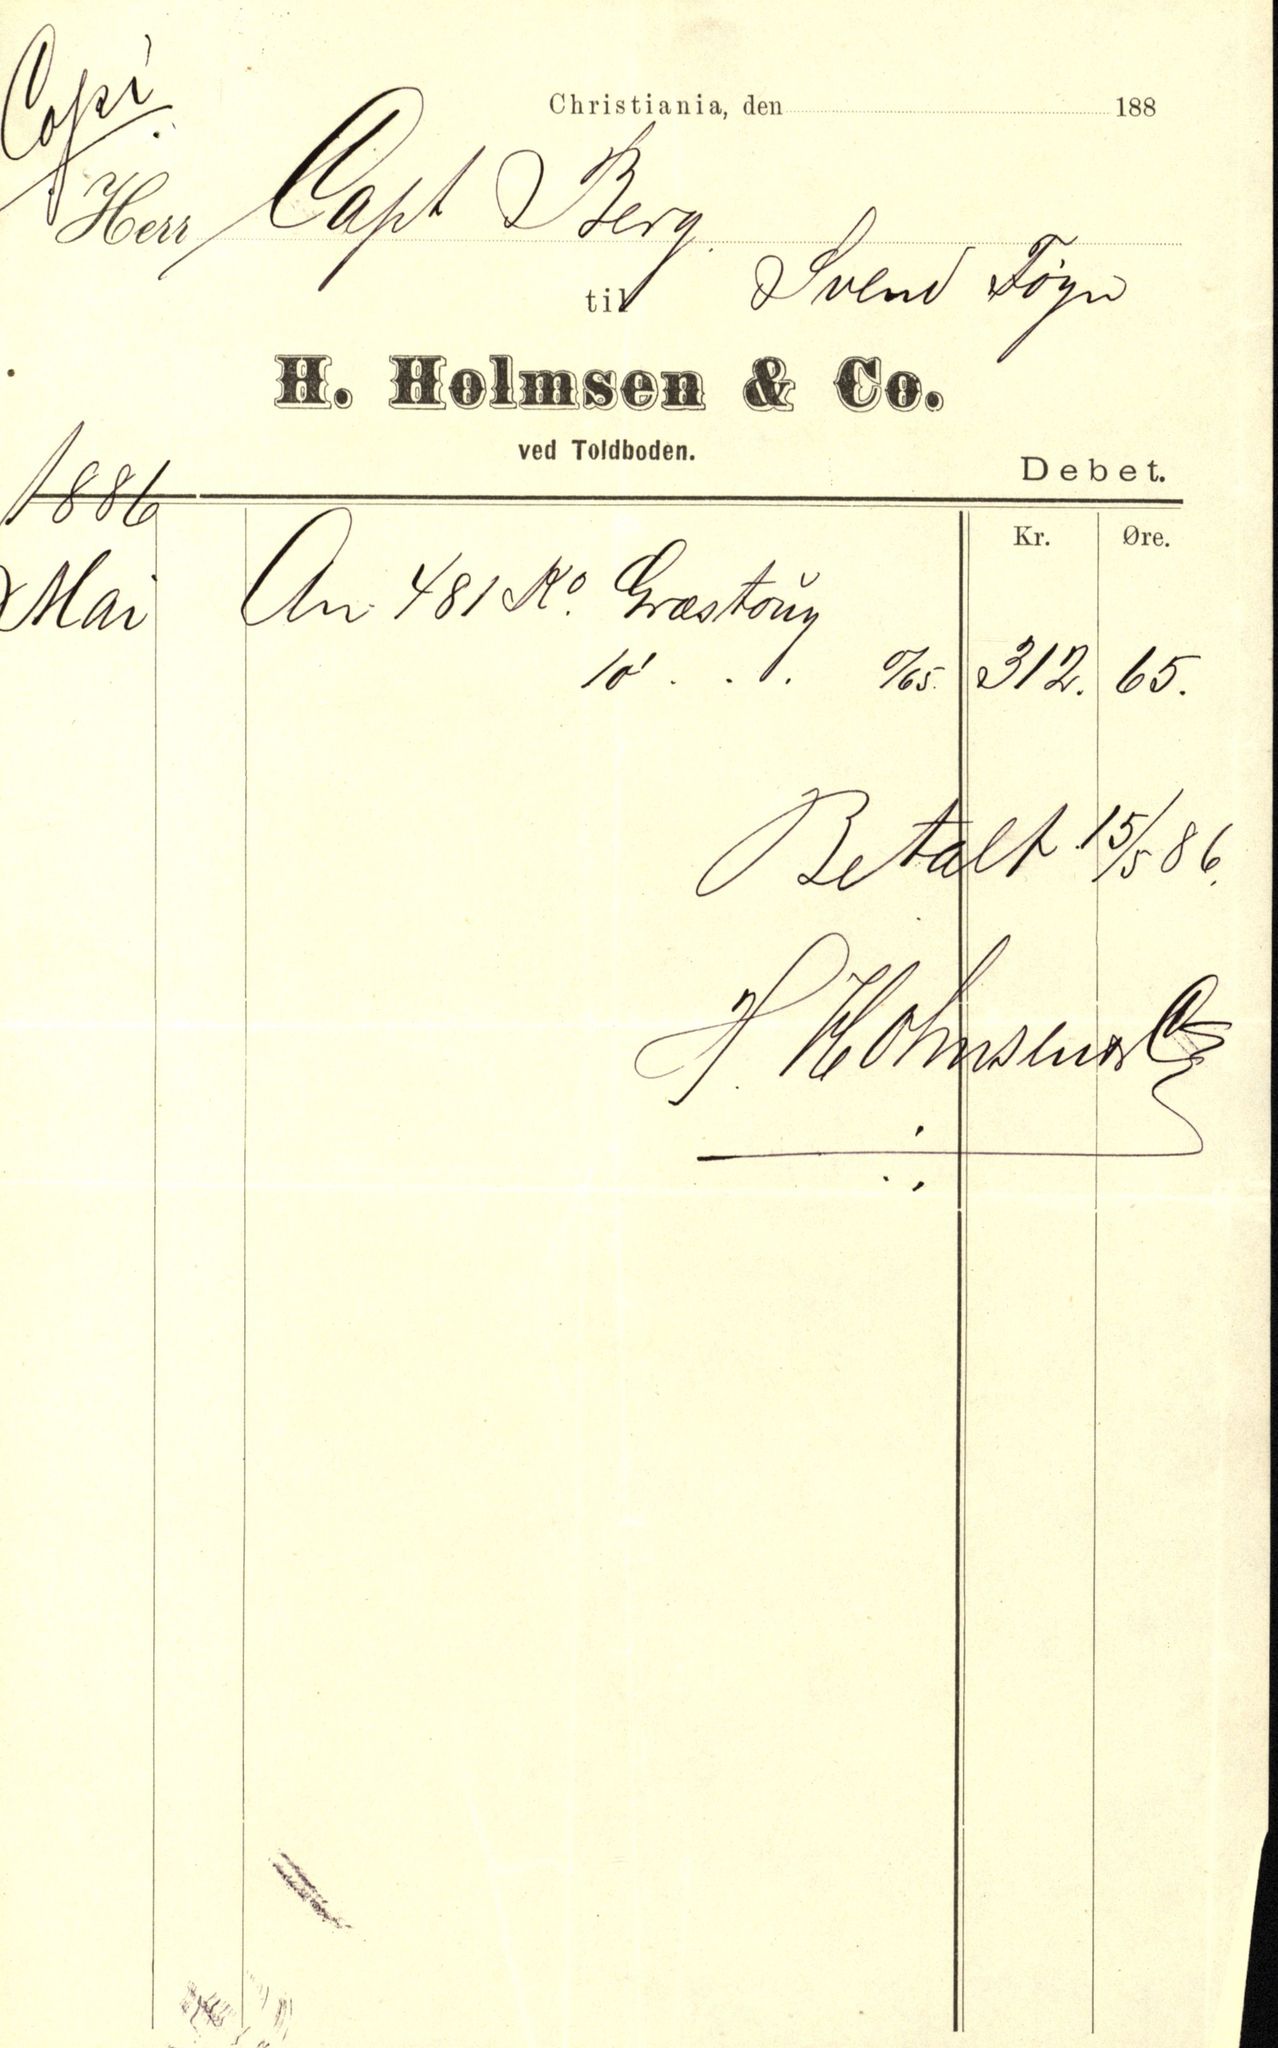 Copi
Christiania, den 188
Herr Capt Berg
til Svend Foyn
H. Holmsen & Co.
ved Toldboden.
Debet.
1886
Kr. Øre.
Mai An 481 Ko. Græstoug
10' . . . 0/65. 312. 65.
Betalt 15/5 86.
H. Holmsen & Co